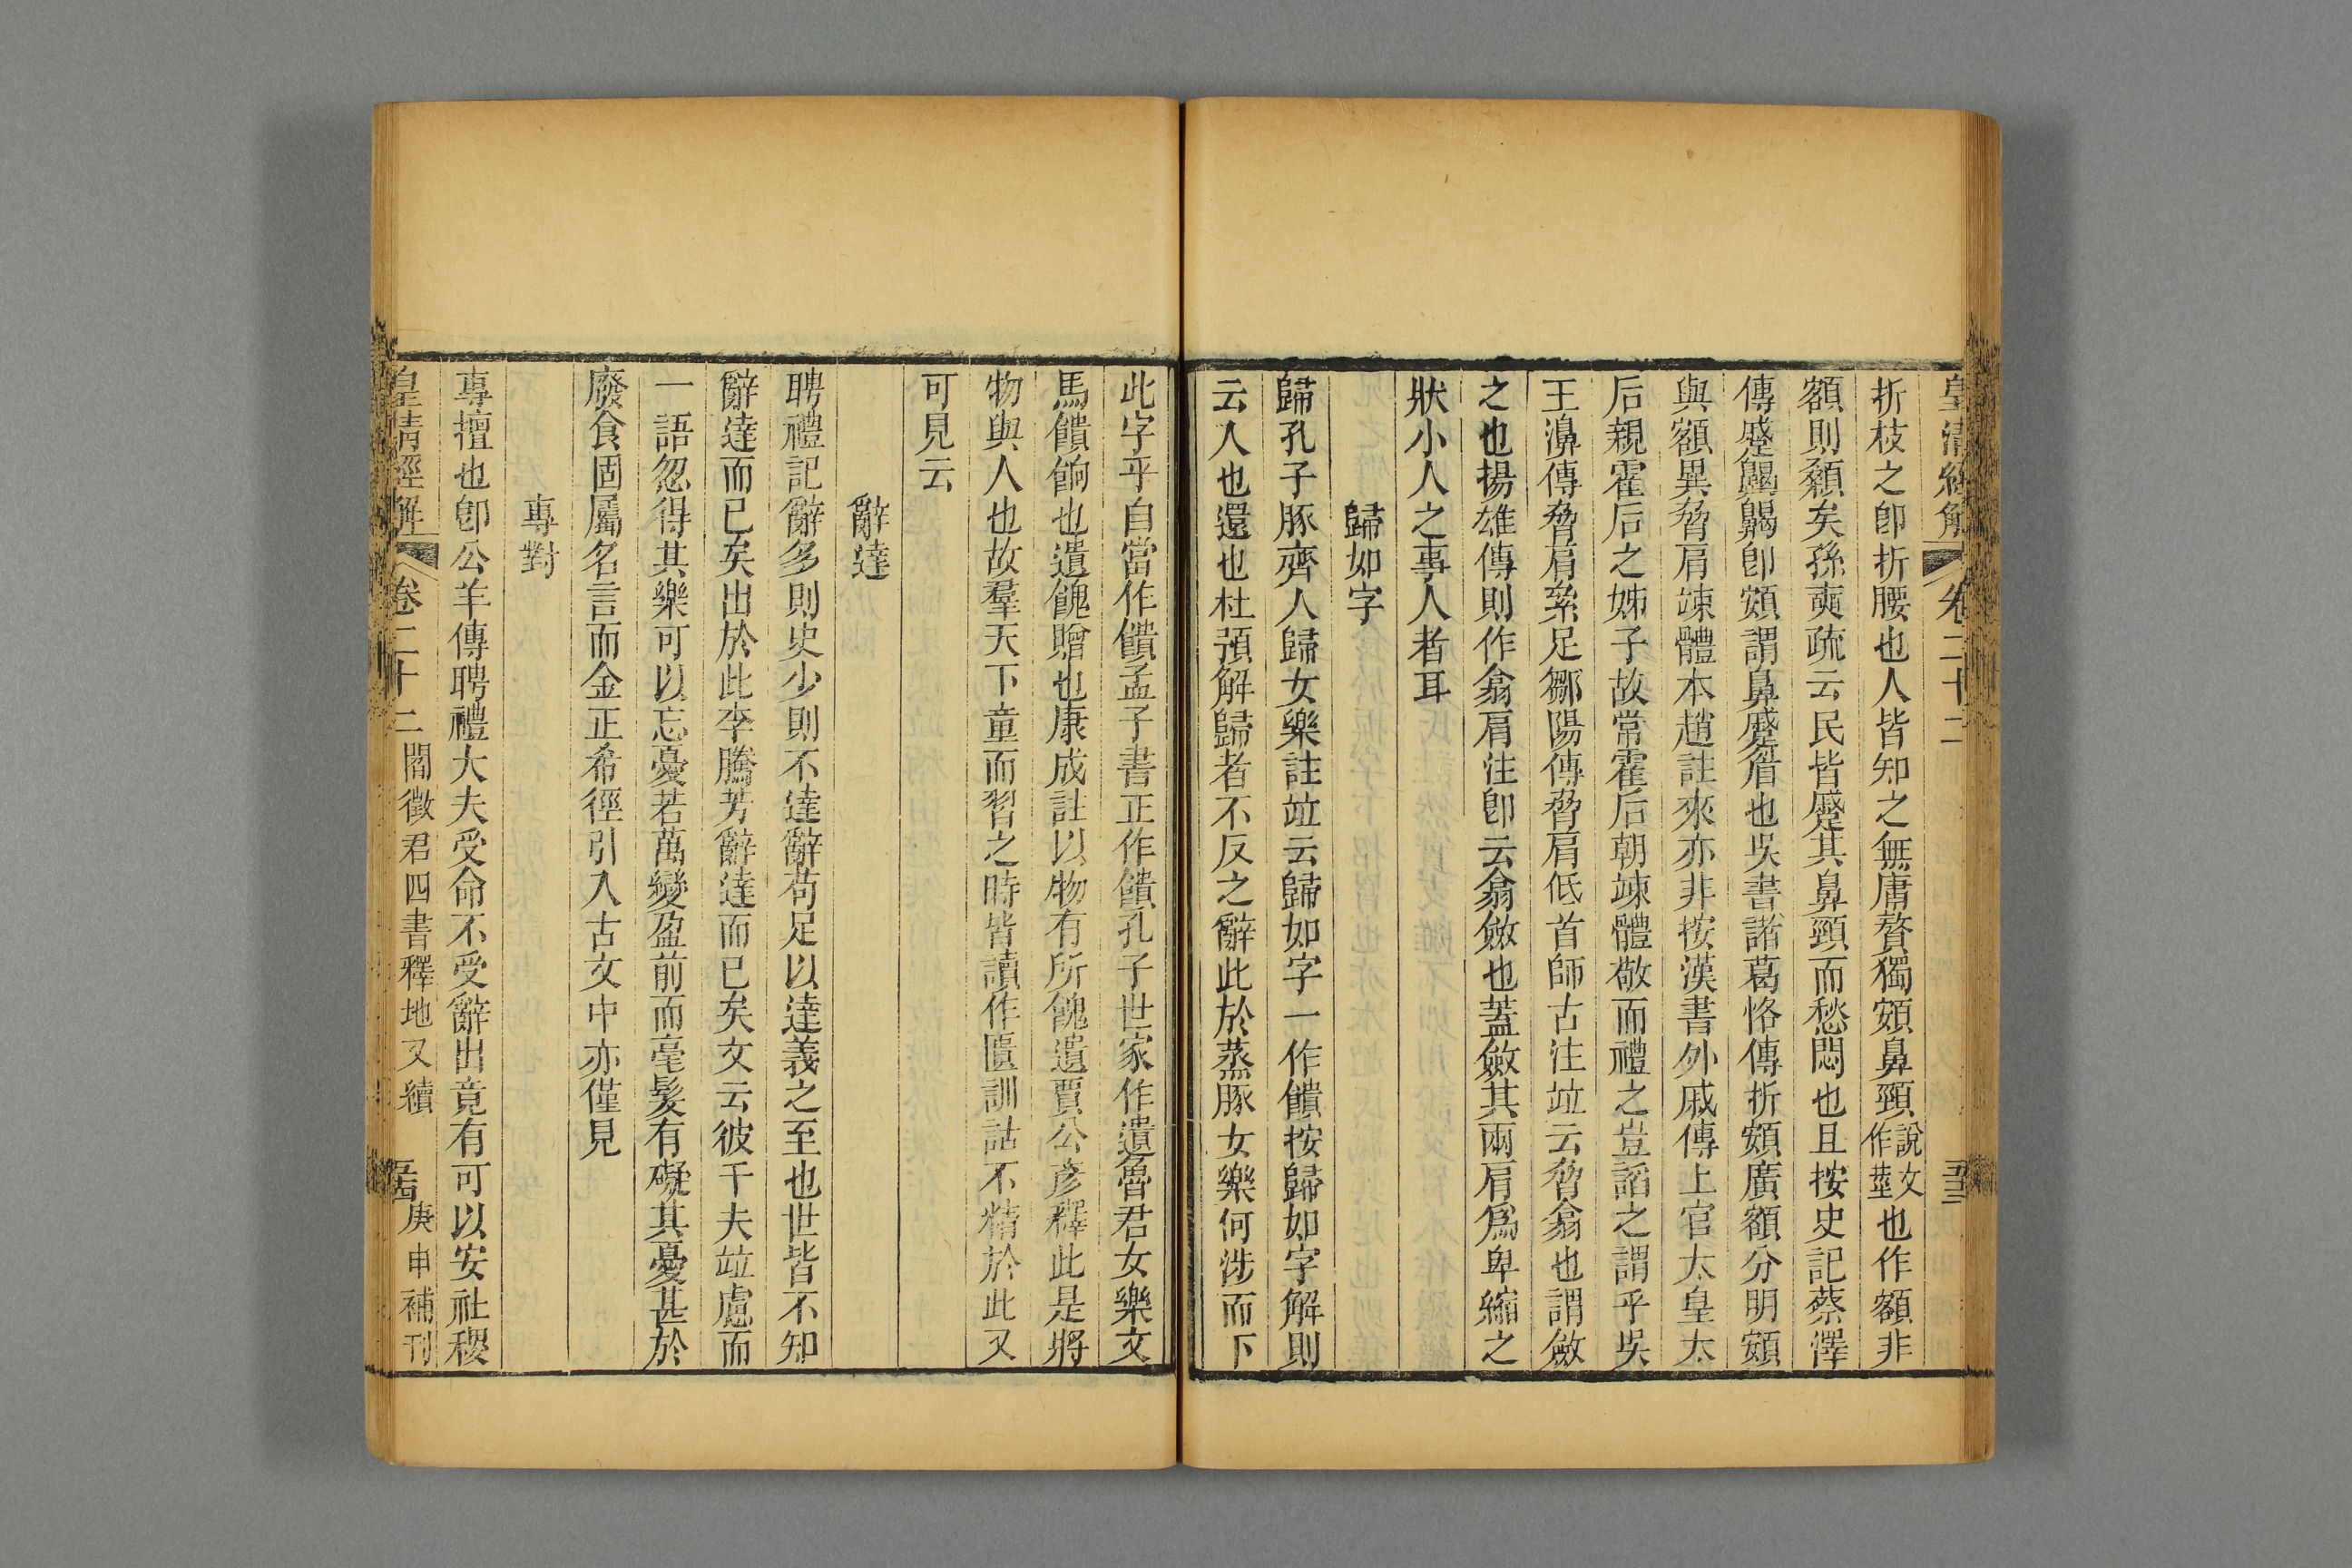 皇清經解 卷二十二
折枝之卽折腰也人皆知之無庸贅獨頞鼻頸說文作莖也作額非
額則顙矣孫奭疏云民皆蹙其鼻頸而愁悶也且按史記蔡澤
傳蹙齃齃卽頞謂鼻蹙眉也吳書諸葛恪傳折頞廣額分明頞
與額異脅肩竦體本趙註來亦非按漢書外戚傳上官太皇太
后親霍后之姊子故常霍后朝竦體敬而禮之豈謟之謂乎吳
王濞傳脅肩絫足鄒陽傳脅肩低首師古注竝云脅翕也謂斂
之也揚雄傳則作翕肩注卽云翕斂也蓋斂其兩肩爲卑縮之
狀小人之事人者耳
歸如字
歸孔子豚齊人歸女樂註竝云歸如字一作饋按歸如字解則
云人也還也杜預解歸者不反之辭此於蒸豚女樂何涉而下
此字乎自當作饋孟子書正作饋孔子世家作遺魯君女樂文
馬饋餉也遺餽贈也康成註以物有所餽遺賈公彥釋此是將
物與人也故羣天下童而習之時皆讀作匱訓詁不精於此又
可見云
辭達
聘禮記辭多則史少則不達辭苟足以達義之至也世皆不知
辭達而已矣出於此李騰芳辭達而已矣文云彼千夫竝慮而
一語忽得其樂可以忘憂若萬變盈前而毫髮有礙其憂甚於
廢食固屬名言而金正希徑引入古文中亦僅見
專對
專擅也卽公羊傳聘禮大夫受命不受辭出竟有可以安社稷
皇清經解 卷二十二 閻徵君四書釋地又續 庚申補刊